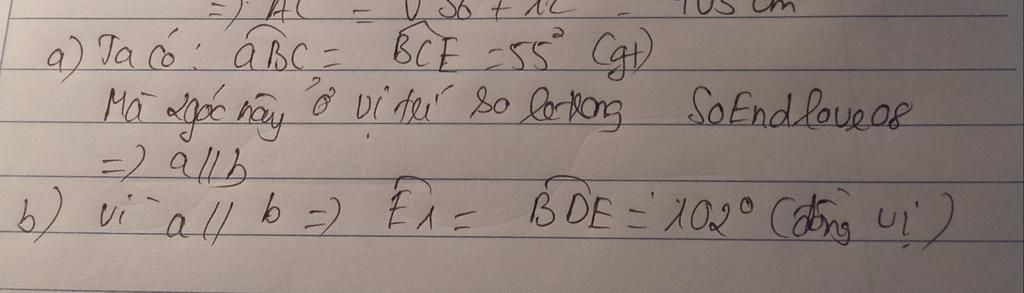 =) AC = √36 + 12 = 105 cm
a) Ta có : aBC = BCE = 55° (gt)
Mà 2góc này ở vị trí so le trong SoEndlove08
=) a // b
b) Vì a // b =) E1 = BDE = 102° (đồng vị)